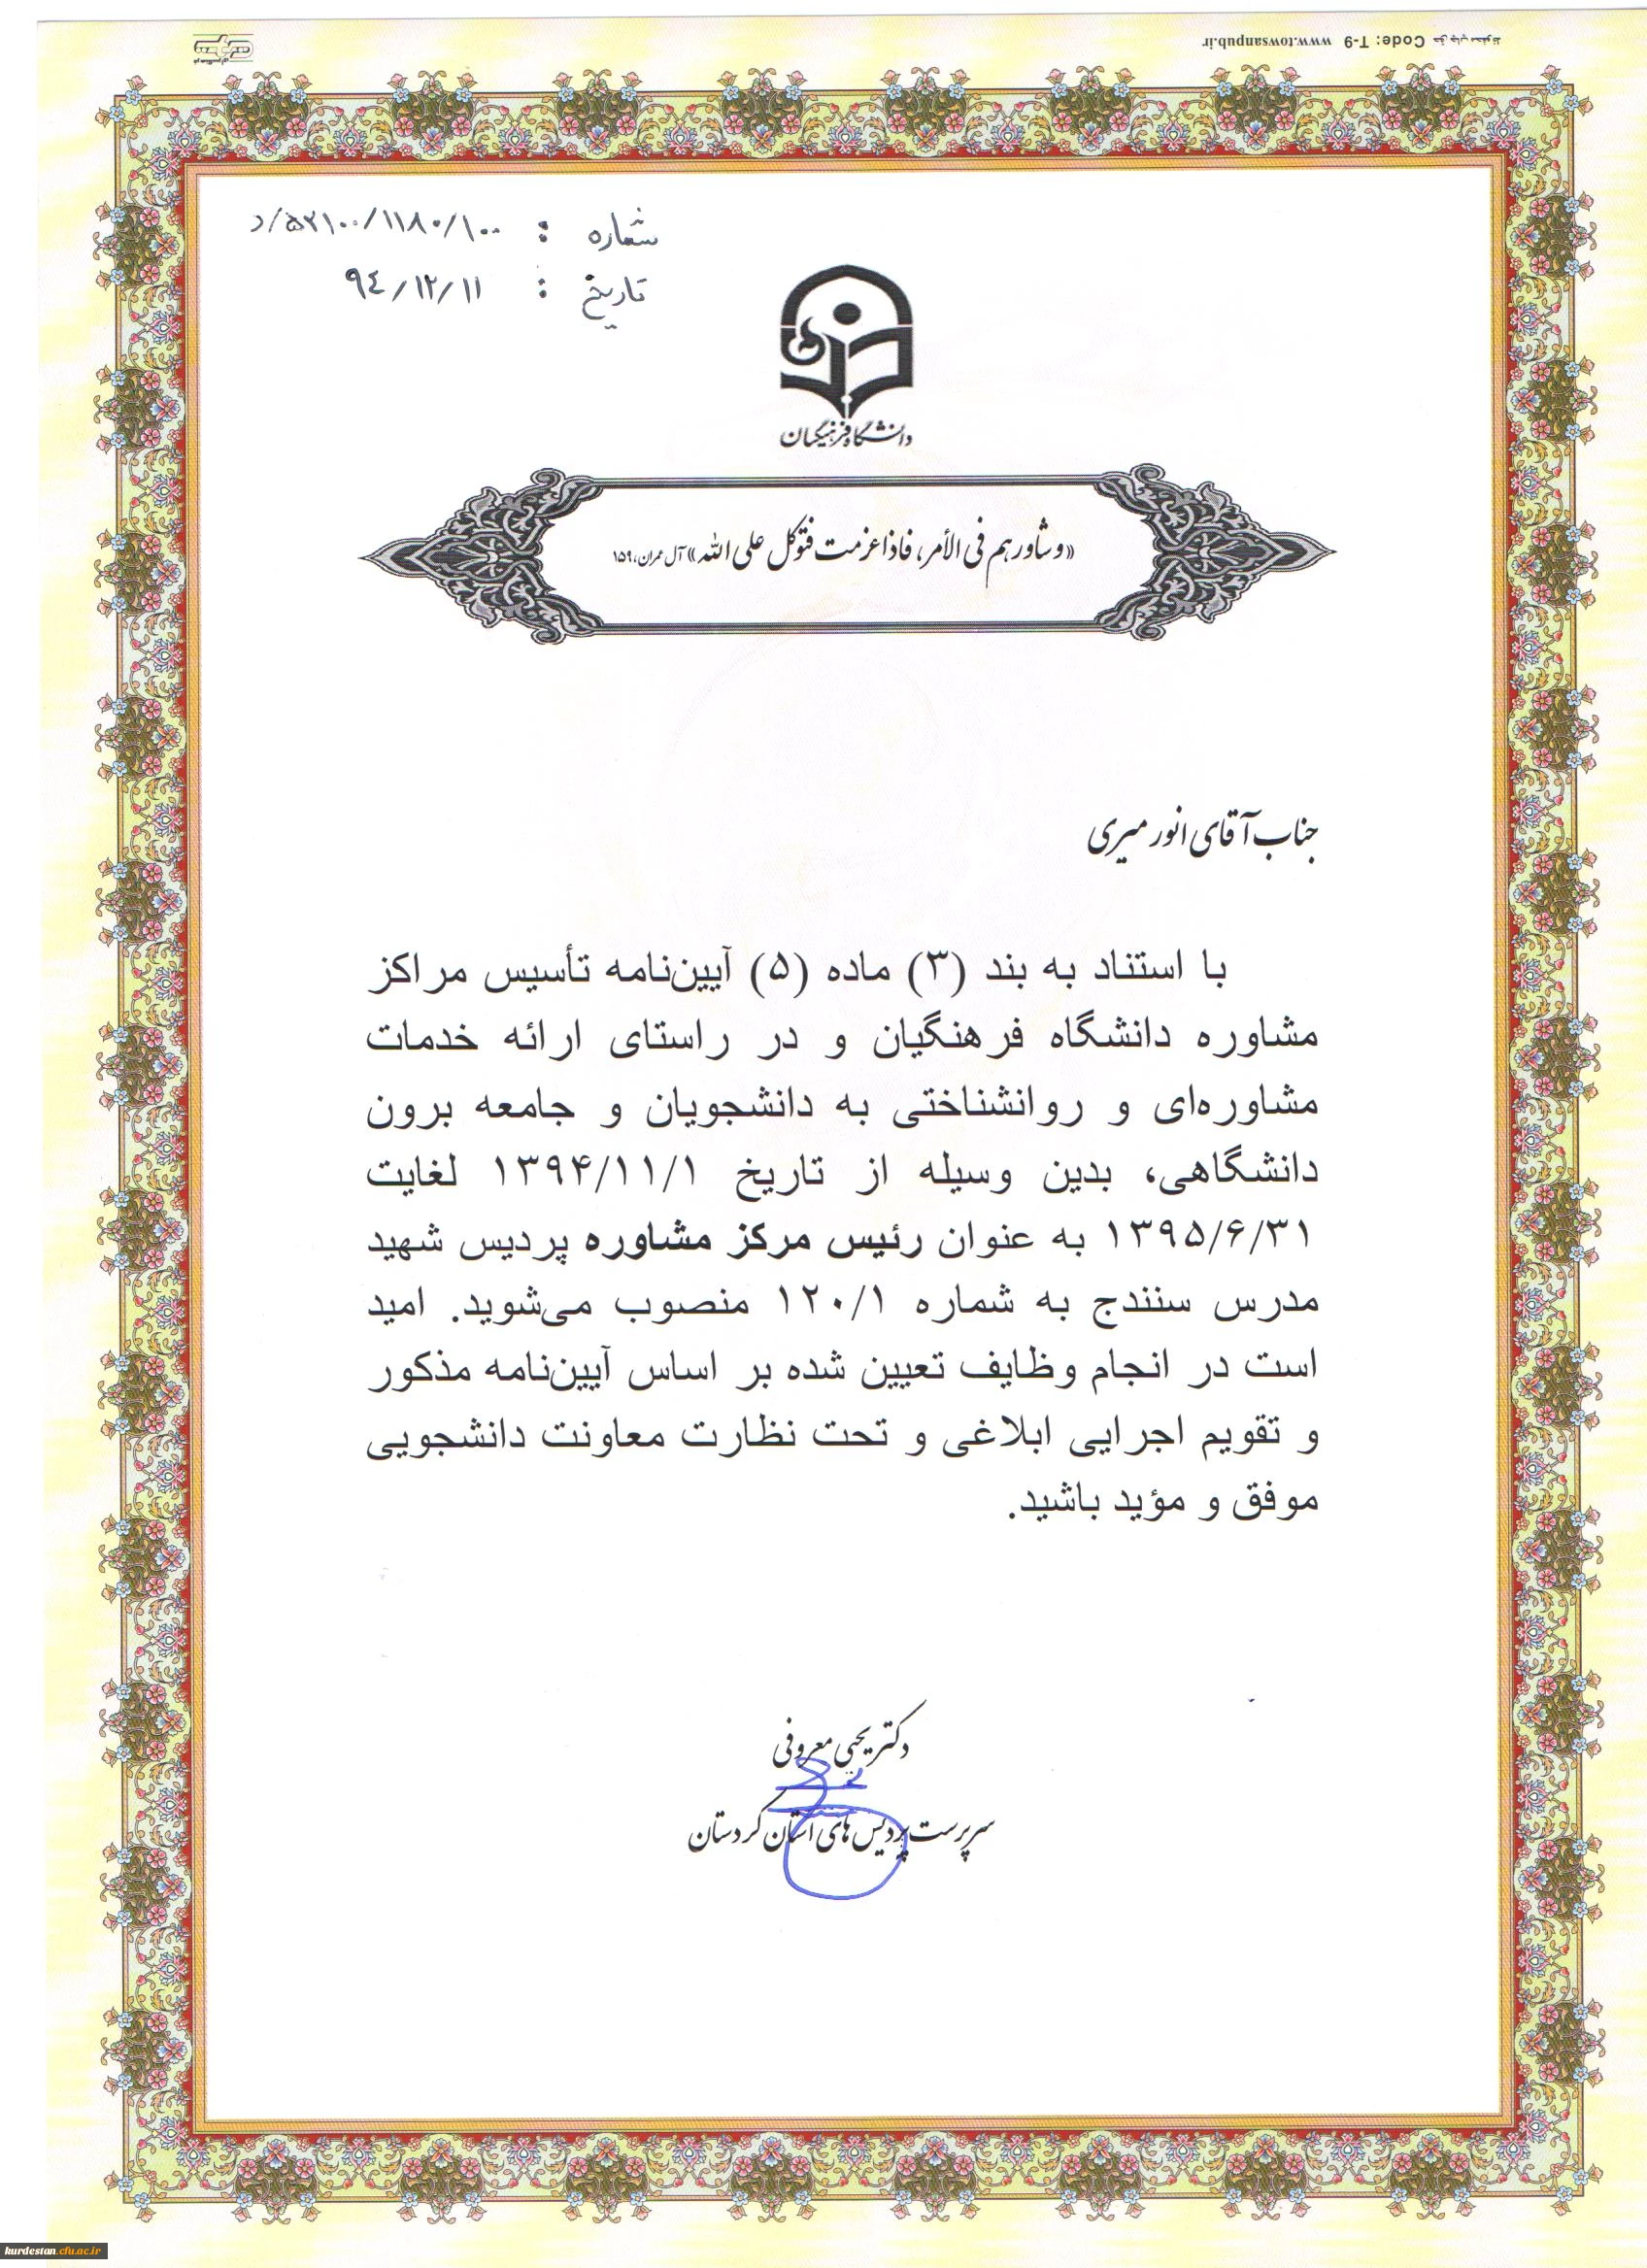 Code: T-9 www.towsanpub.ir
شماره : ۵۲۱۰۰/۱۱۸۰/۱۰۰/د
تاریخ : ۹۴/۱۲/۱۱
دانشگاه فرهنگیان
«وشاورهم فی الأمر، فاذا عزمت فتوکل علی الله» آل عمران، ۱۵۹
جناب آقای انور میری
با استناد به بند (۳) ماده (۵) آیین‌نامه تأسیس مراکز
مشاوره دانشگاه فرهنگیان و در راستای ارائه خدمات
مشاوره‌ای و روانشناختی به دانشجویان و جامعه برون
دانشگاهی، بدین وسیله از تاریخ ۱۳۹۴/۱۱/۱ لغایت
۱۳۹۵/۶/۳۱ به عنوان رئیس مرکز مشاوره پردیس شهید
مدرس سنندج به شماره ۱۲۰/۱ منصوب می‌شوید. امید
است در انجام وظایف تعیین شده بر اساس آیین‌نامه مذکور
و تقویم اجرایی ابلاغی و تحت نظارت معاونت دانشجویی
موفق و مؤید باشید.
دکتر یحیی معروفی
سرپرست پردیس های استان کردستان
kurdestan.cfu.ac.ir